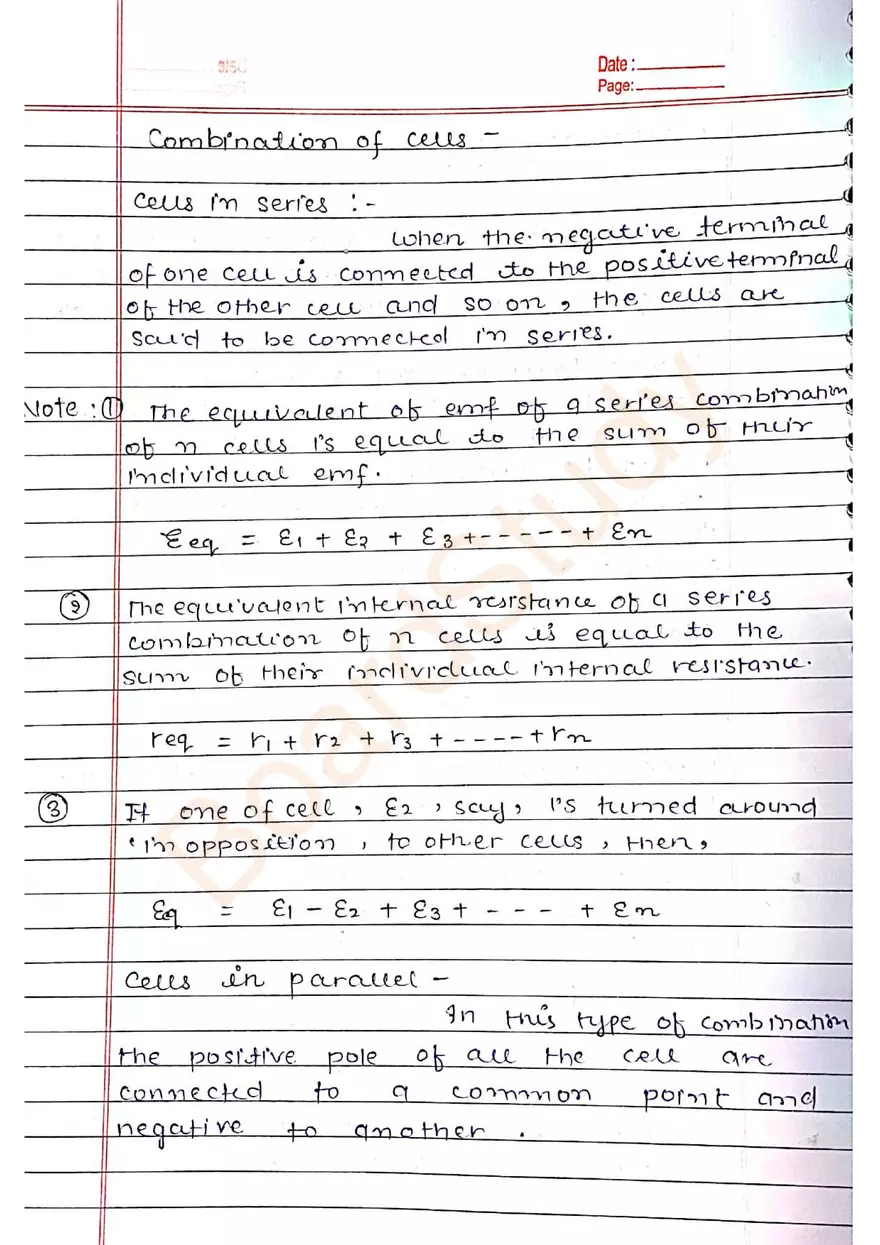 Date :
Page:
Combination of cells -
Cells in series :-
When the negative terminal
of one cell is connected to the positive terminal
of the other cell and so on, the cells are
said to be connected in series.
Note : ① The equivalent of emf of a series combination
of n cells is equal to the sum of their
individual emf.
Ɛeq = Ɛ1 + Ɛ2 + Ɛ3 + - - - - - + Ɛn
② The equivalent internal resistance of a series
combination of n cells is equal to the
sum of their individual internal resistance.
req = r1 + r2 + r3 + - - - - + rn
③ If one of cell, Ɛ2, say, is turned around
'in opposition, to other cells, then,
Ɛeq = Ɛ1 - Ɛ2 + Ɛ3 + - - - + Ɛn
Cells in parallel -
In this type of combination
the positive pole of all the cell are
connected to a common point and
negative to another.
BoardStudy